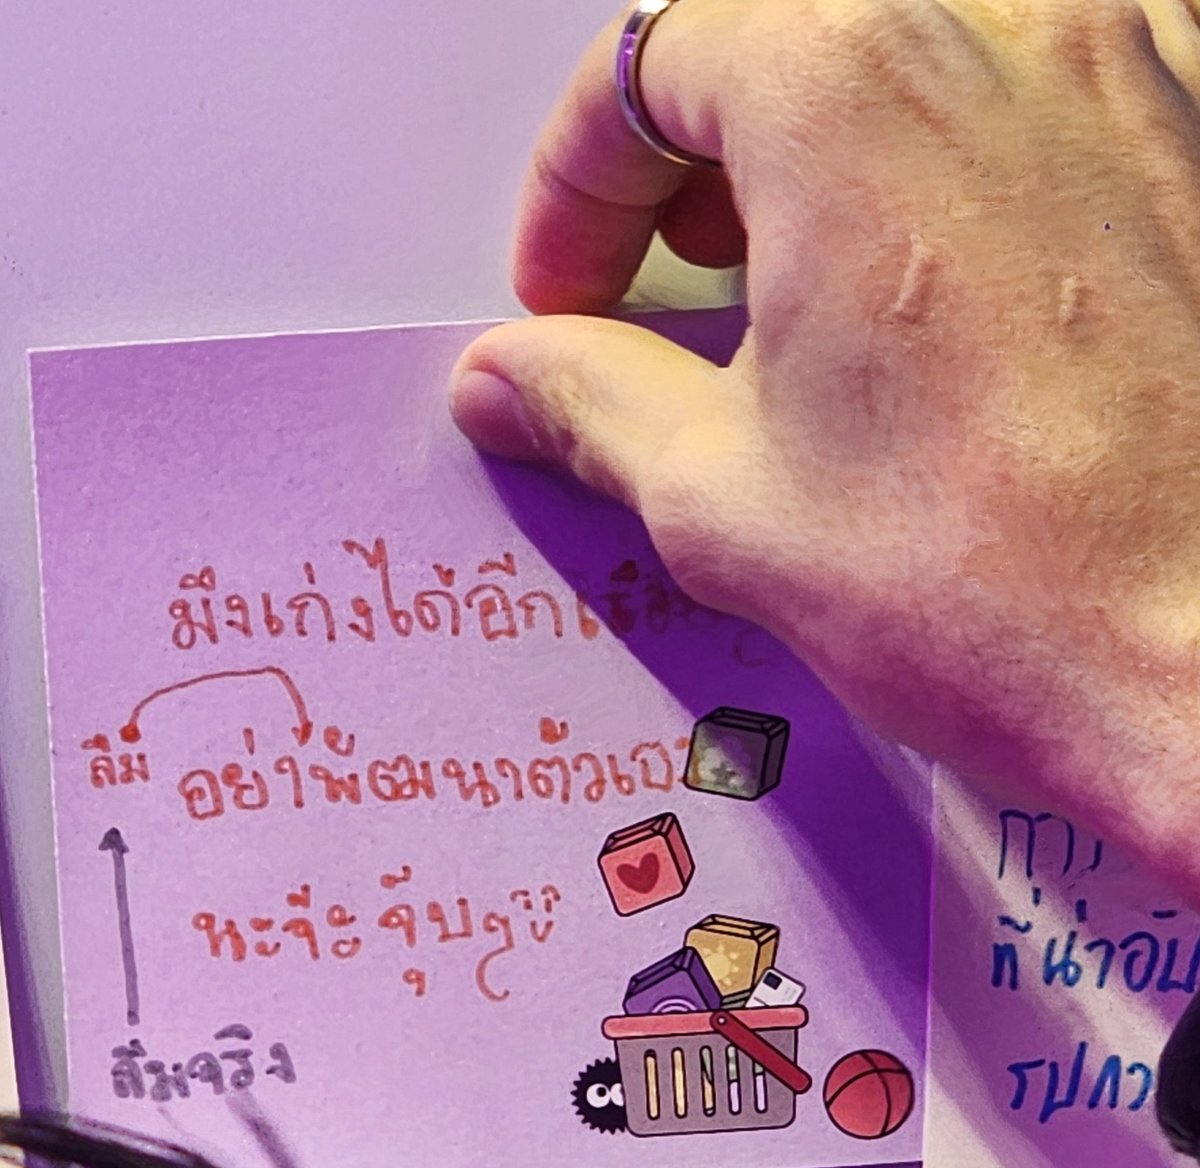 มึงเก่งได้อีกเรื่อย
ลืม อย่าพัฒนาตัวเอ
นะจ๊ะ จุ๊บๆ
ลืมจริง
การ
ที่น่าอับ